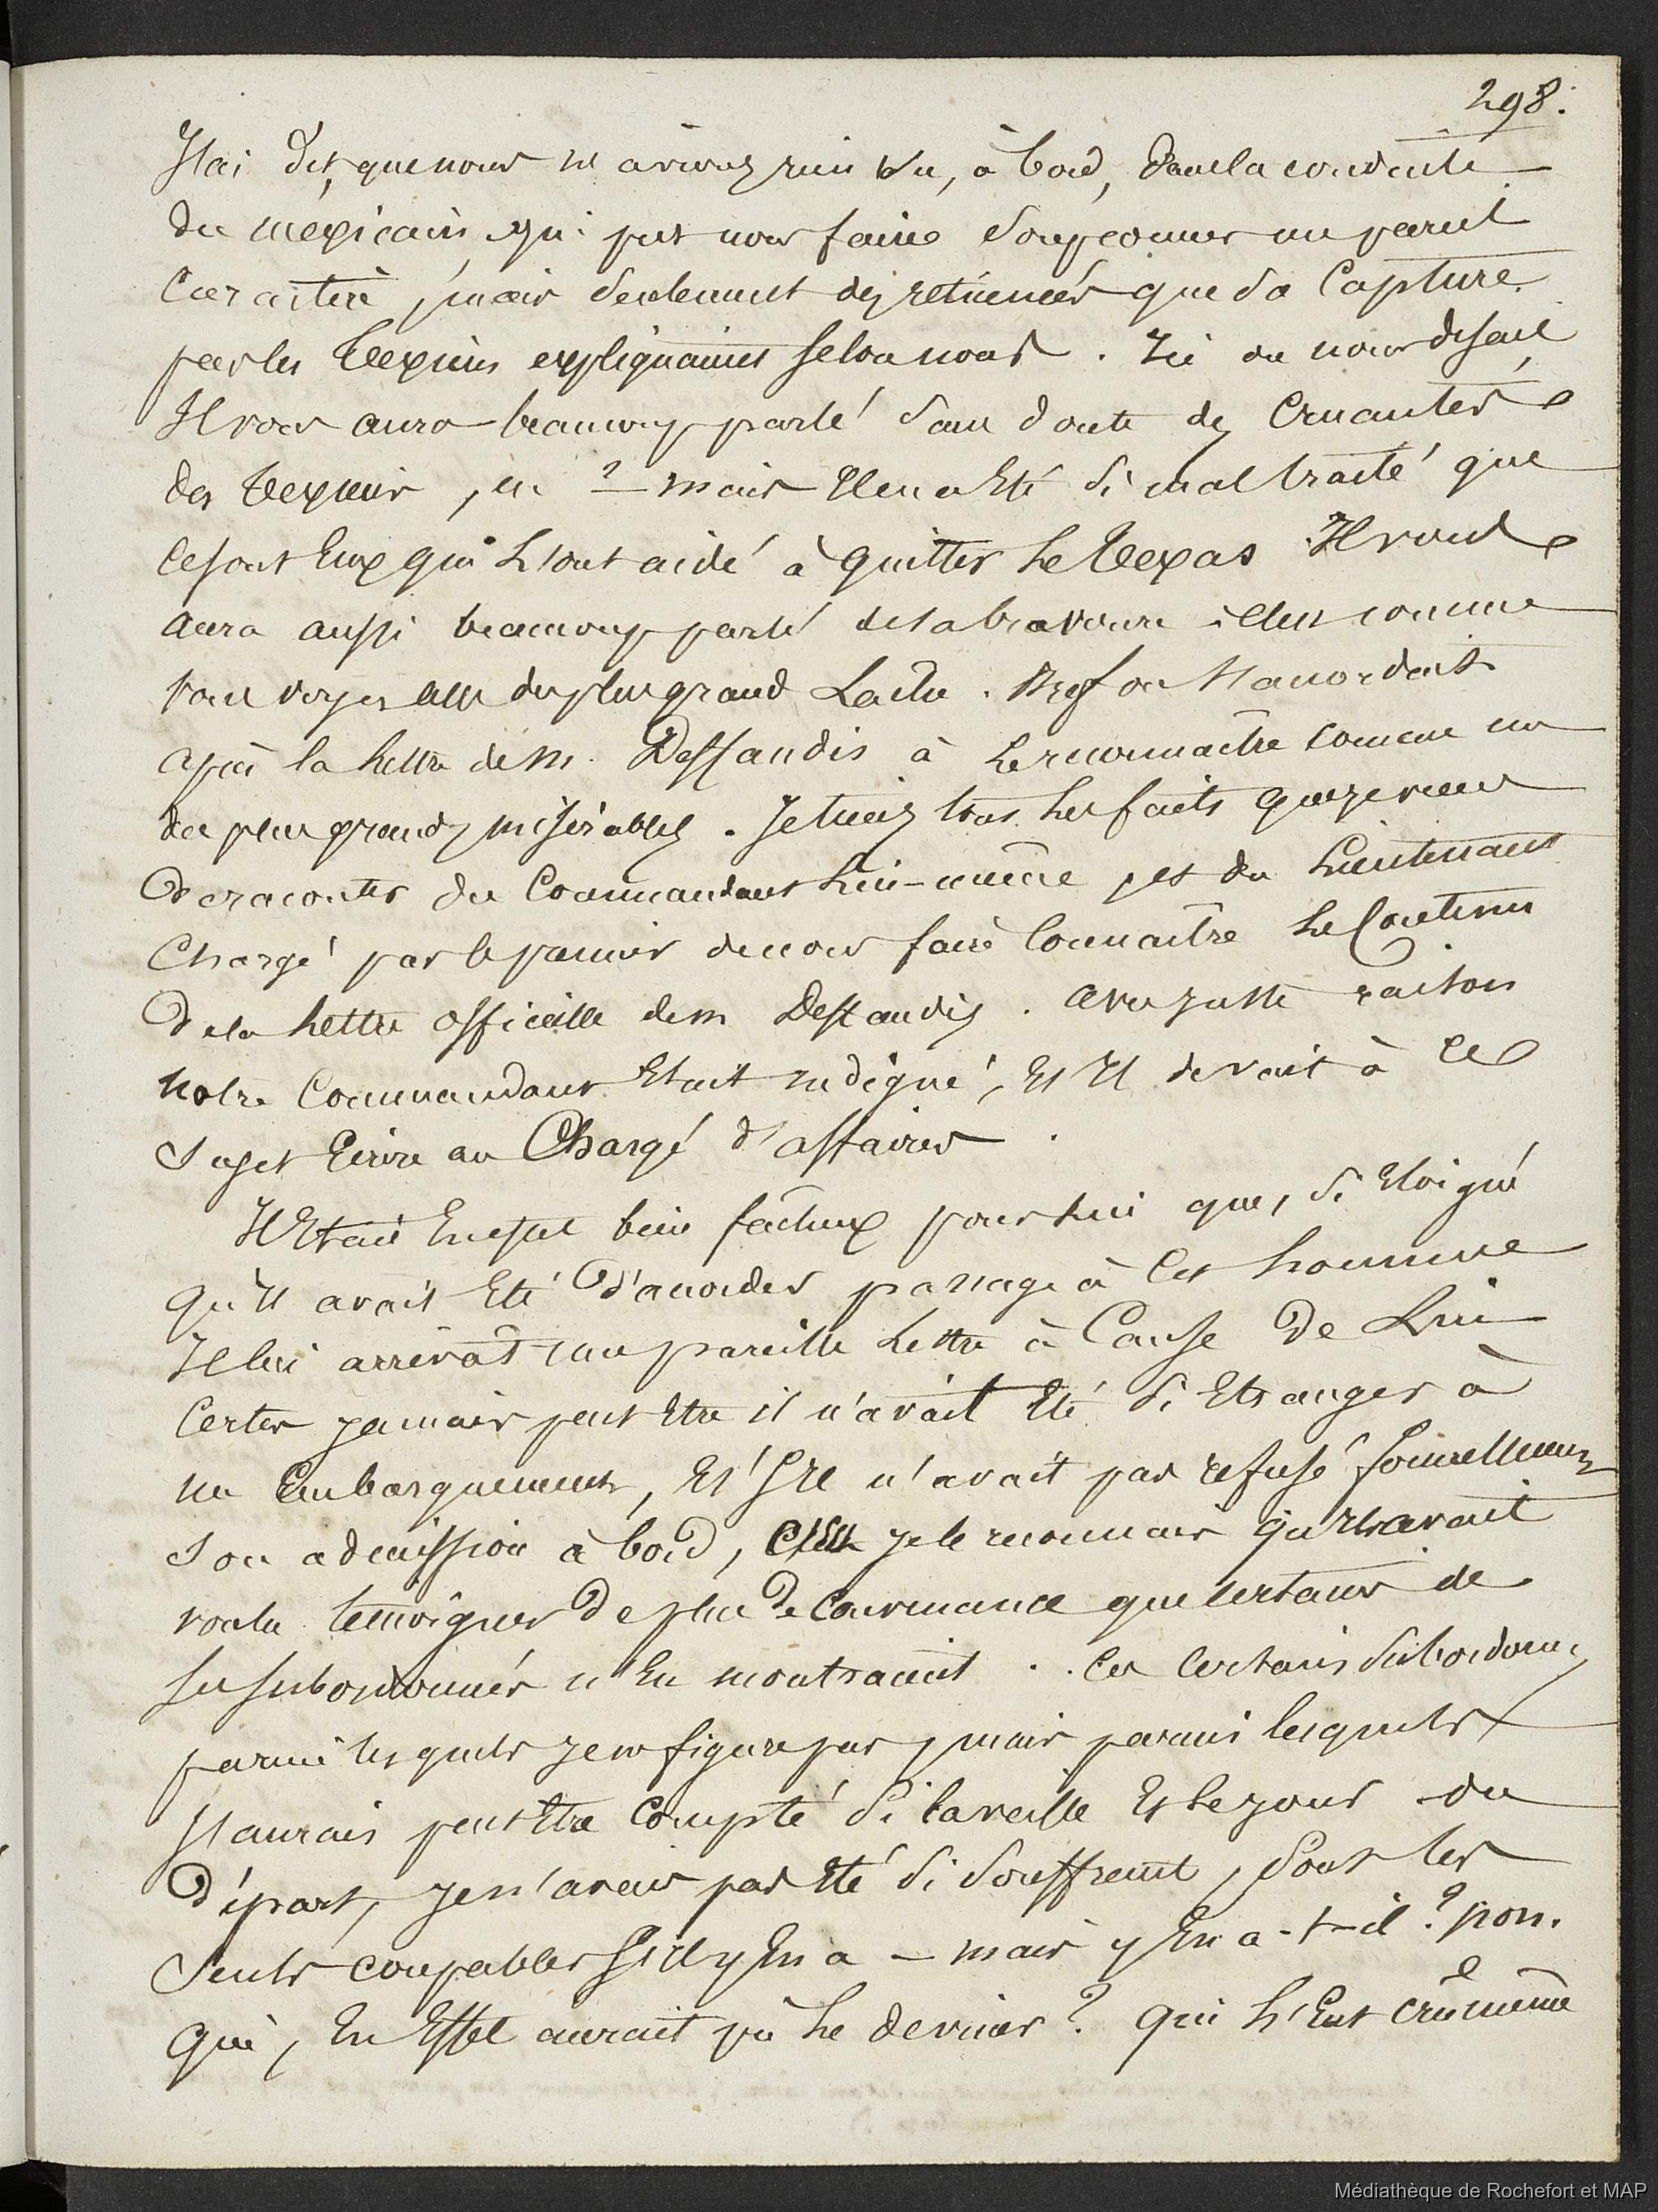 298.
J'ai dit, que nous n'avions rien vu, à bord, dans la conduite
du mexicain, qui put nous faire soupçonner un pareil
caractère, mais seulement des réticences que sa Capture
par les Texiens expliquaient selon nous. Ici on nous disait
Il vous aura beaucoup parlé sans doute des Cruautés
des Texiens, eh ? — mais Il en a Eté si maltraité que
ce sont Eux qui l'ont aidé à quitter le Texas Il vous
aura aussi beaucoup parlé de sa bravoure il est comme
vous voyez des plus grand Lache. Bref on s'accordait
après la lettre de M. Deffaudis à le reconnaître comme un
des plus grands misérables. Je tiens tous les faits que je viens
de raconter du Commandant lui-même, et du Lieutenant
Chargé par le premier de nous faire Connaître le Contenu
de la lettre officielle de m Deffaudis. avec juste raison
notre Commandant Etait indigné, Et Il devait à ce
sujet Ecrire au Chargé d'affaires.
Il Etait En effet bien fâcheux pour lui que, si Eloigné
qu'Il avait Eté d'accorder passage à Cet homme
Il lui arrivât une pareille Lettre à Cause de Lui
Certes jamais peut Etre il n'avait Eté si Etranger à
un Embarquement, Et S'Il n'avait pas refusé formellement
son admission à bord, C'Est je le reconnais qu'Il avait
voulu témoigner de plus de Convenance que certains de
ses subordonnés n'En montraient. . Ces Certains subordonnés
parmi lesquels je ne figure pas, mais parmi lesquels
J'aurais peut Etre Compté si la veille Et le jour du
départ, je n'avais pas Eté si souffrant, sont les
seuls coupables S'Il y En a — mais y En a-t-il ? non.
Qui, En Effet aurait pû le deviner ? Qui l'Eut crû même
Médiathèque de Rochefort et MAP